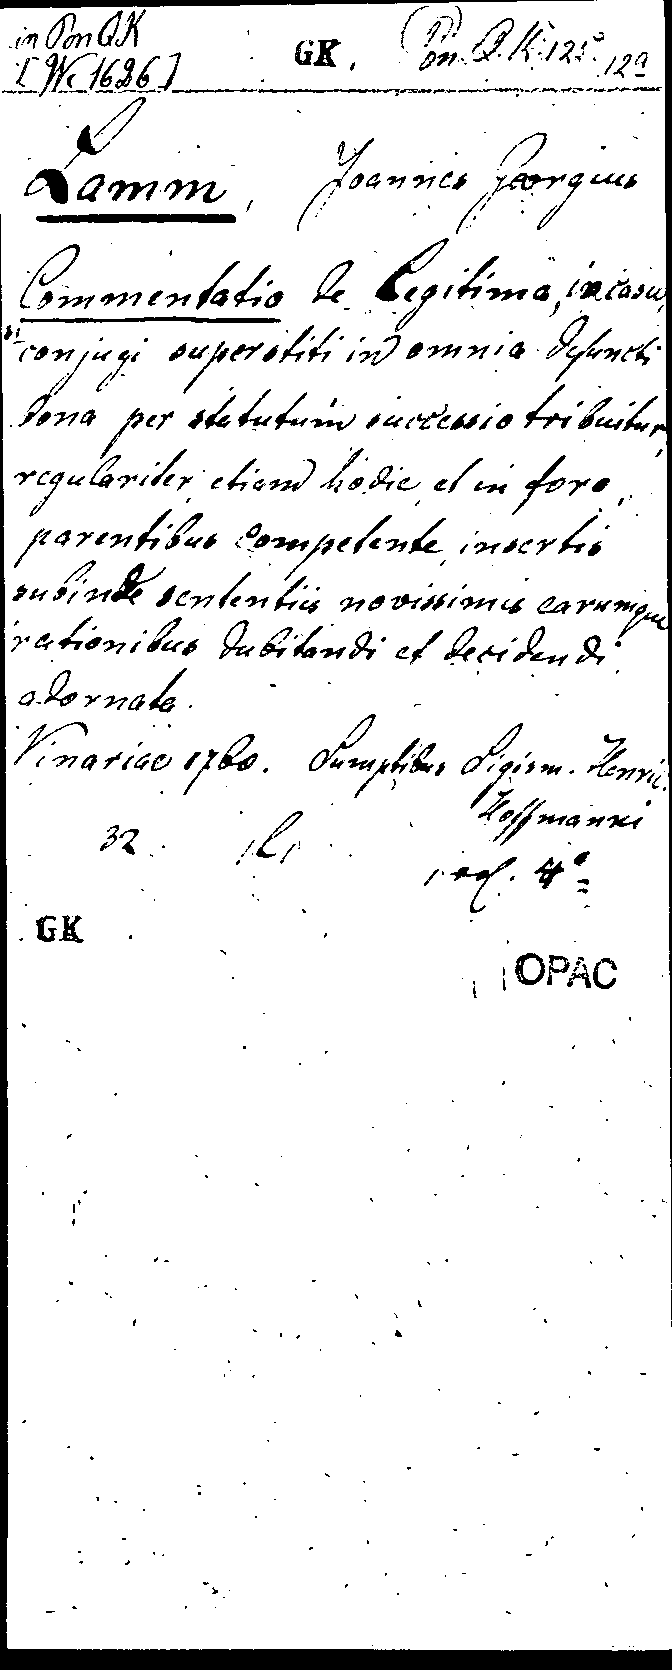 in Pon QK GK. Pon. Q.K. 125. 12a
[We 1626]
Lamm, Joannes Georgius
Commentatio de Legitima, in casu,
si conjugi superstiti in omnia defuncti
bona per statutum successio tribuitur,
regulariter, etiam hodie, et in foro,
parentibus competente, insertis
subinde sententiis novissimis earumque
rationibus dubitandi et decidendi
adornata.
Vinariae 1760. Sumptibus Sigism. Henric.
Hoffmanni
32
4°
GK
OPAC